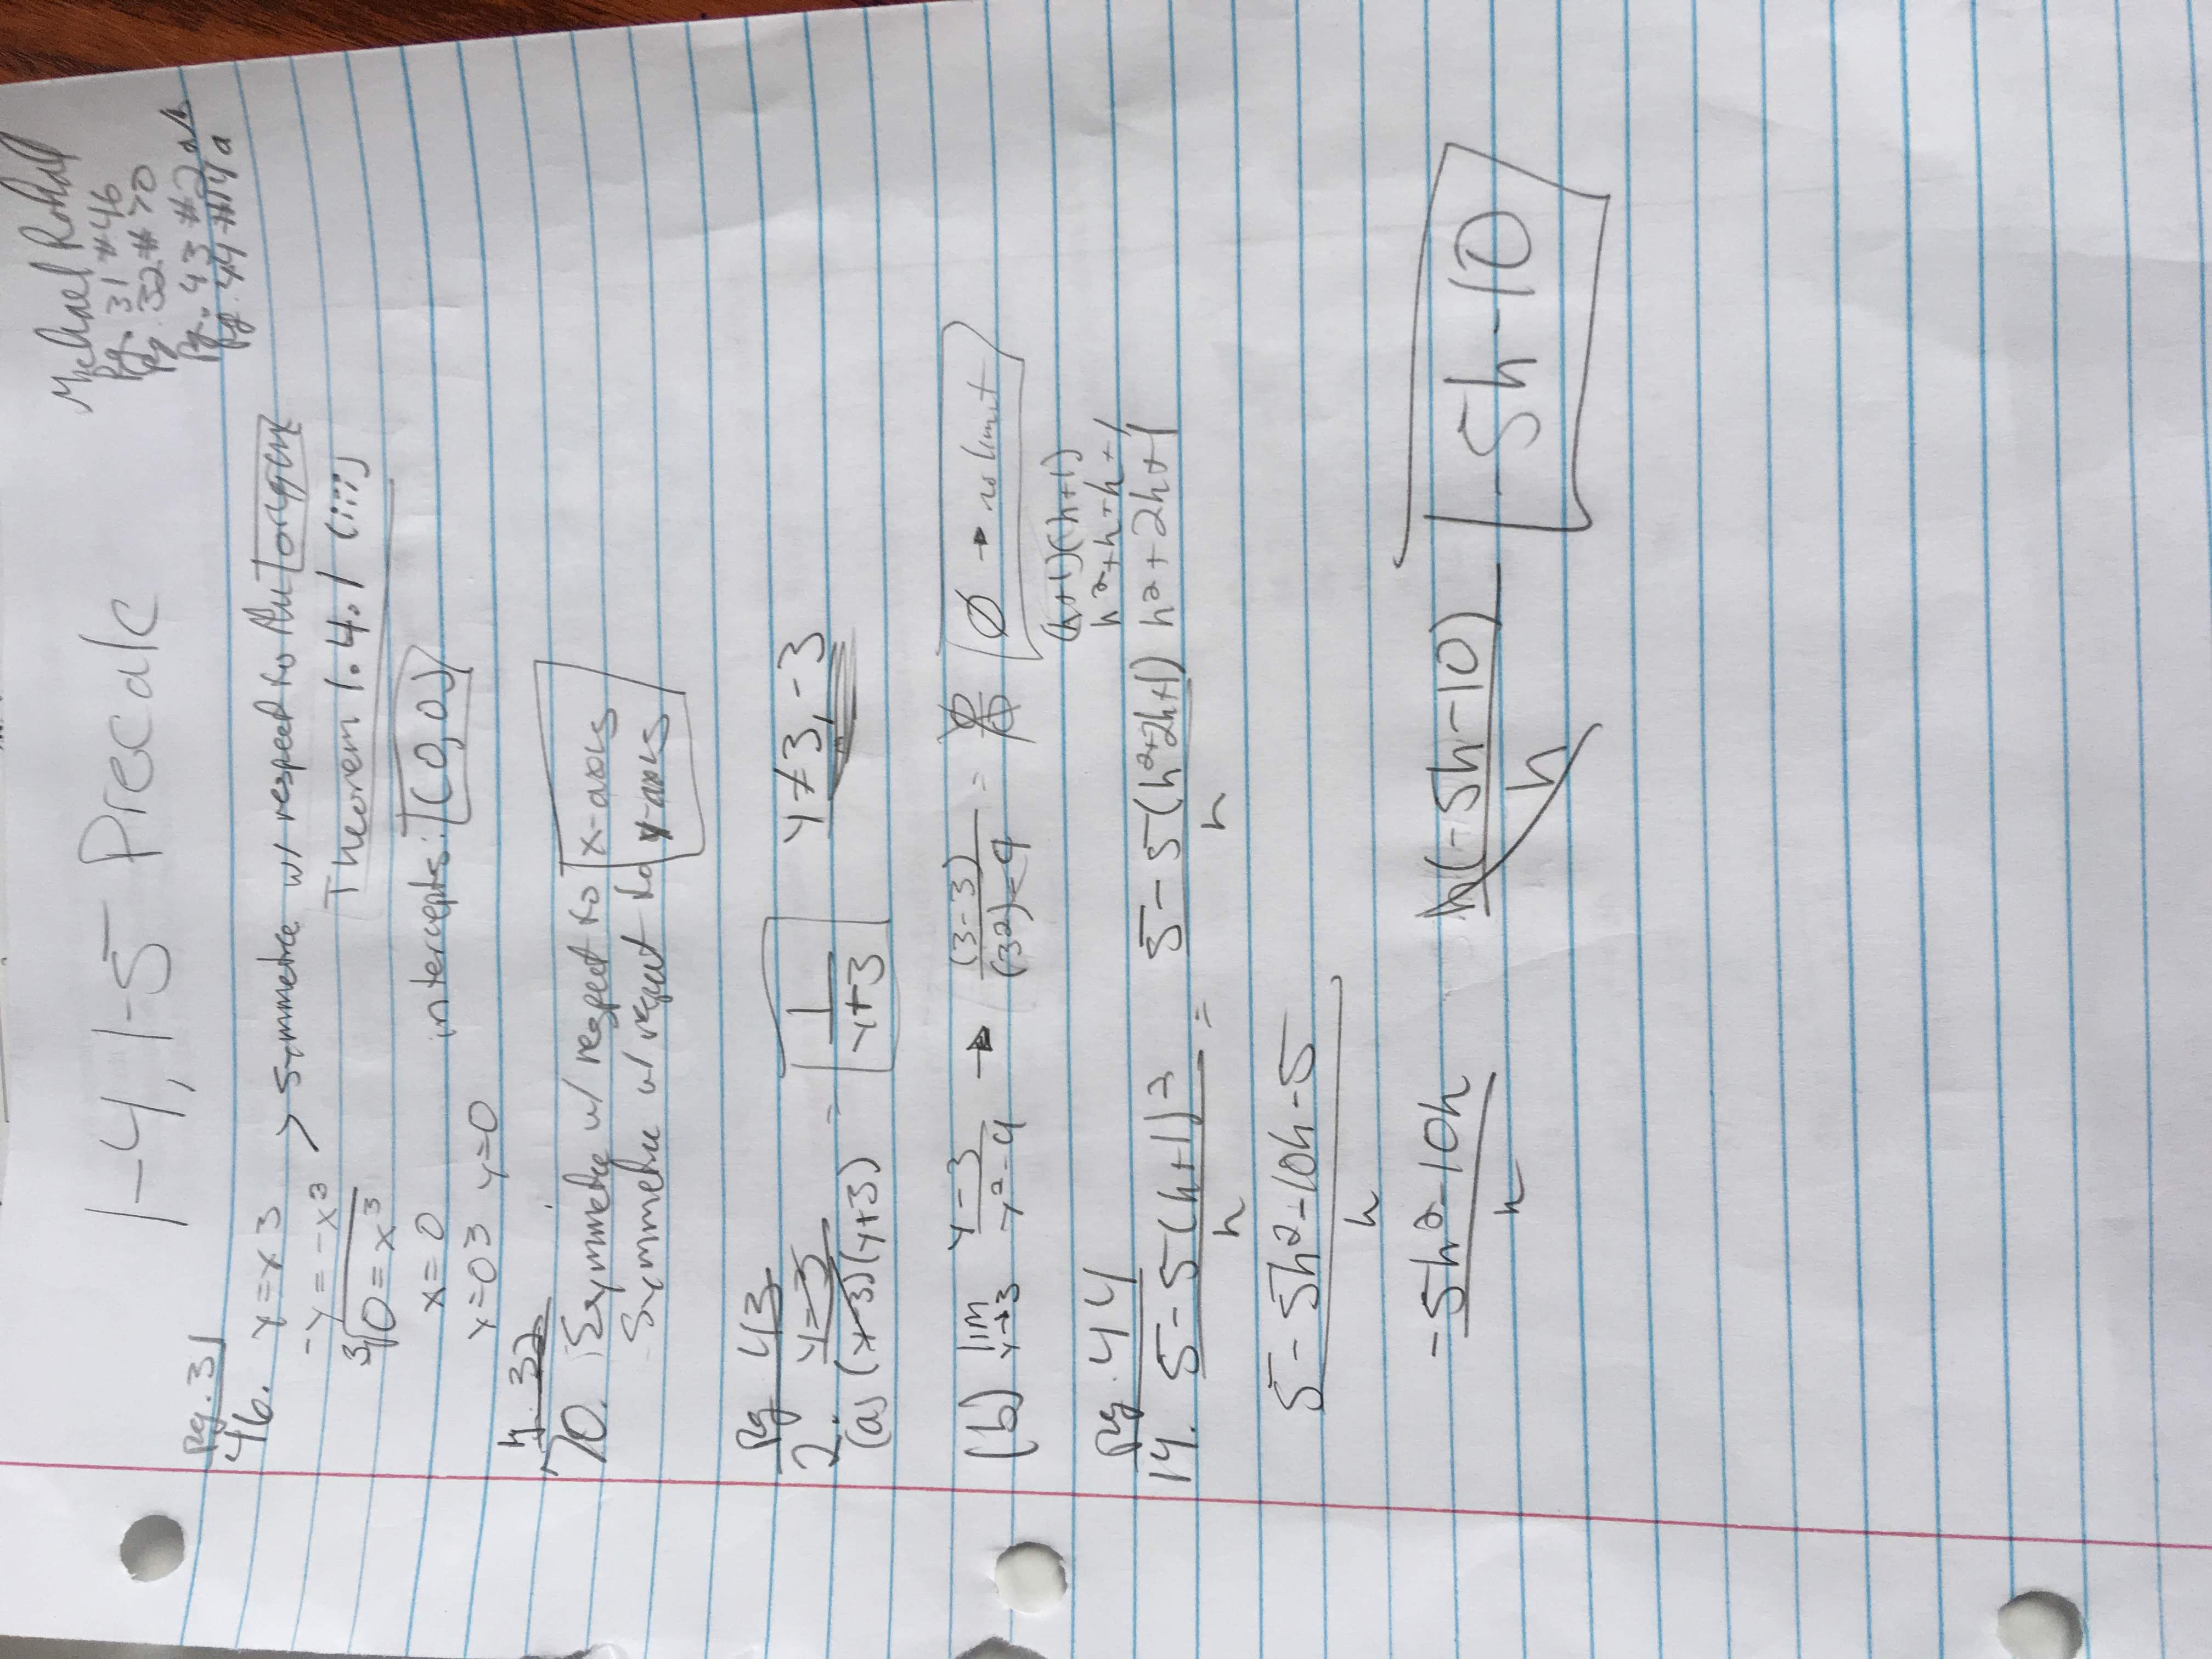 1-4, 1-5 Precalc
Michael
Pg. 31 #46
Pg. 32 #70
Pg. 43 #2ab
Pg. 44 #14a
Pg. 31
46. y=x3 > Symmetric w/ respect to the origin
-y=-x³ Theorem 1.4.1 (iii)
∛0=x³
x=0 intercepts: (0,0)
y=03 y=0
32
70. Symmetric w/ respect to x-axis
Symmetric w/ respect to y-axis
Pg 43
2. y-3
(a) (y-3)(y+3) = 1/y+3 y≠3,-3
(b) lim y→3 y-3/y²-9 → (3-3)/(3²)-9 = 0/0 Ø → no limit
(h+1)(h+1)
h²+h+h+1
h²+2h+1
Pg. 44
14. 5-5(h+1)²/h = 5-5(h²+2h+1)/h
5-5h²-10h-5/h
-5h²-10h/h h(-5h-10)/h -5h-10